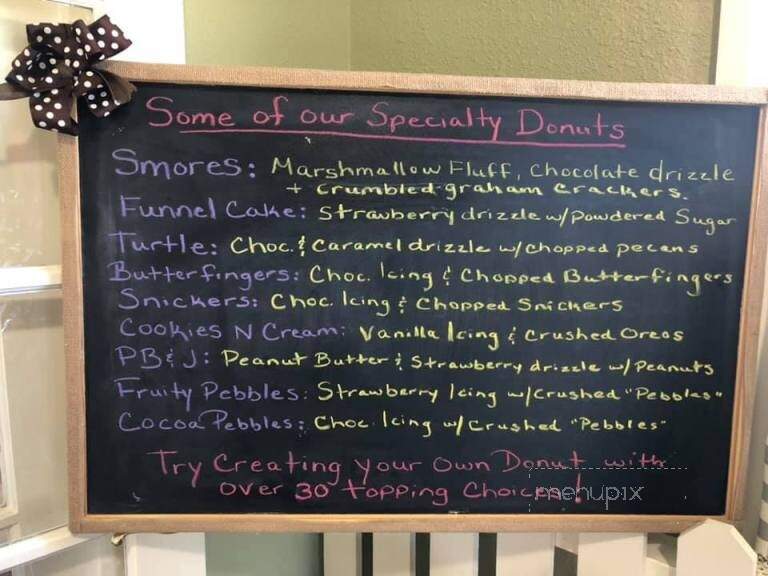 Some of our Specialty Donuts
Smores: Marshmallow Fluff, Chocolate drizzle
+ crumbled graham crackers.
Funnel Cake: Strawberry drizzle w/Powdered Sugar
Turtle: Choc. & Caramel drizzle w/chopped pecans
Butterfingers: Choc. Icing & Chopped Butterfingers
Snickers: Choc. Icing & Chopped Snickers
Cookies N Cream: Vanilla Icing & Crushed Oreos
PB & J: Peanut Butter & Strawberry drizzle w/ Peanuts
Fruity Pebbles: Strawberry Icing w/crushed "Pebbles"
Cocoa Pebbles: Choc. Icing w/ Crushed "Pebbles"
Try Creating your own Donut with
over 30 topping Choices!
menupix